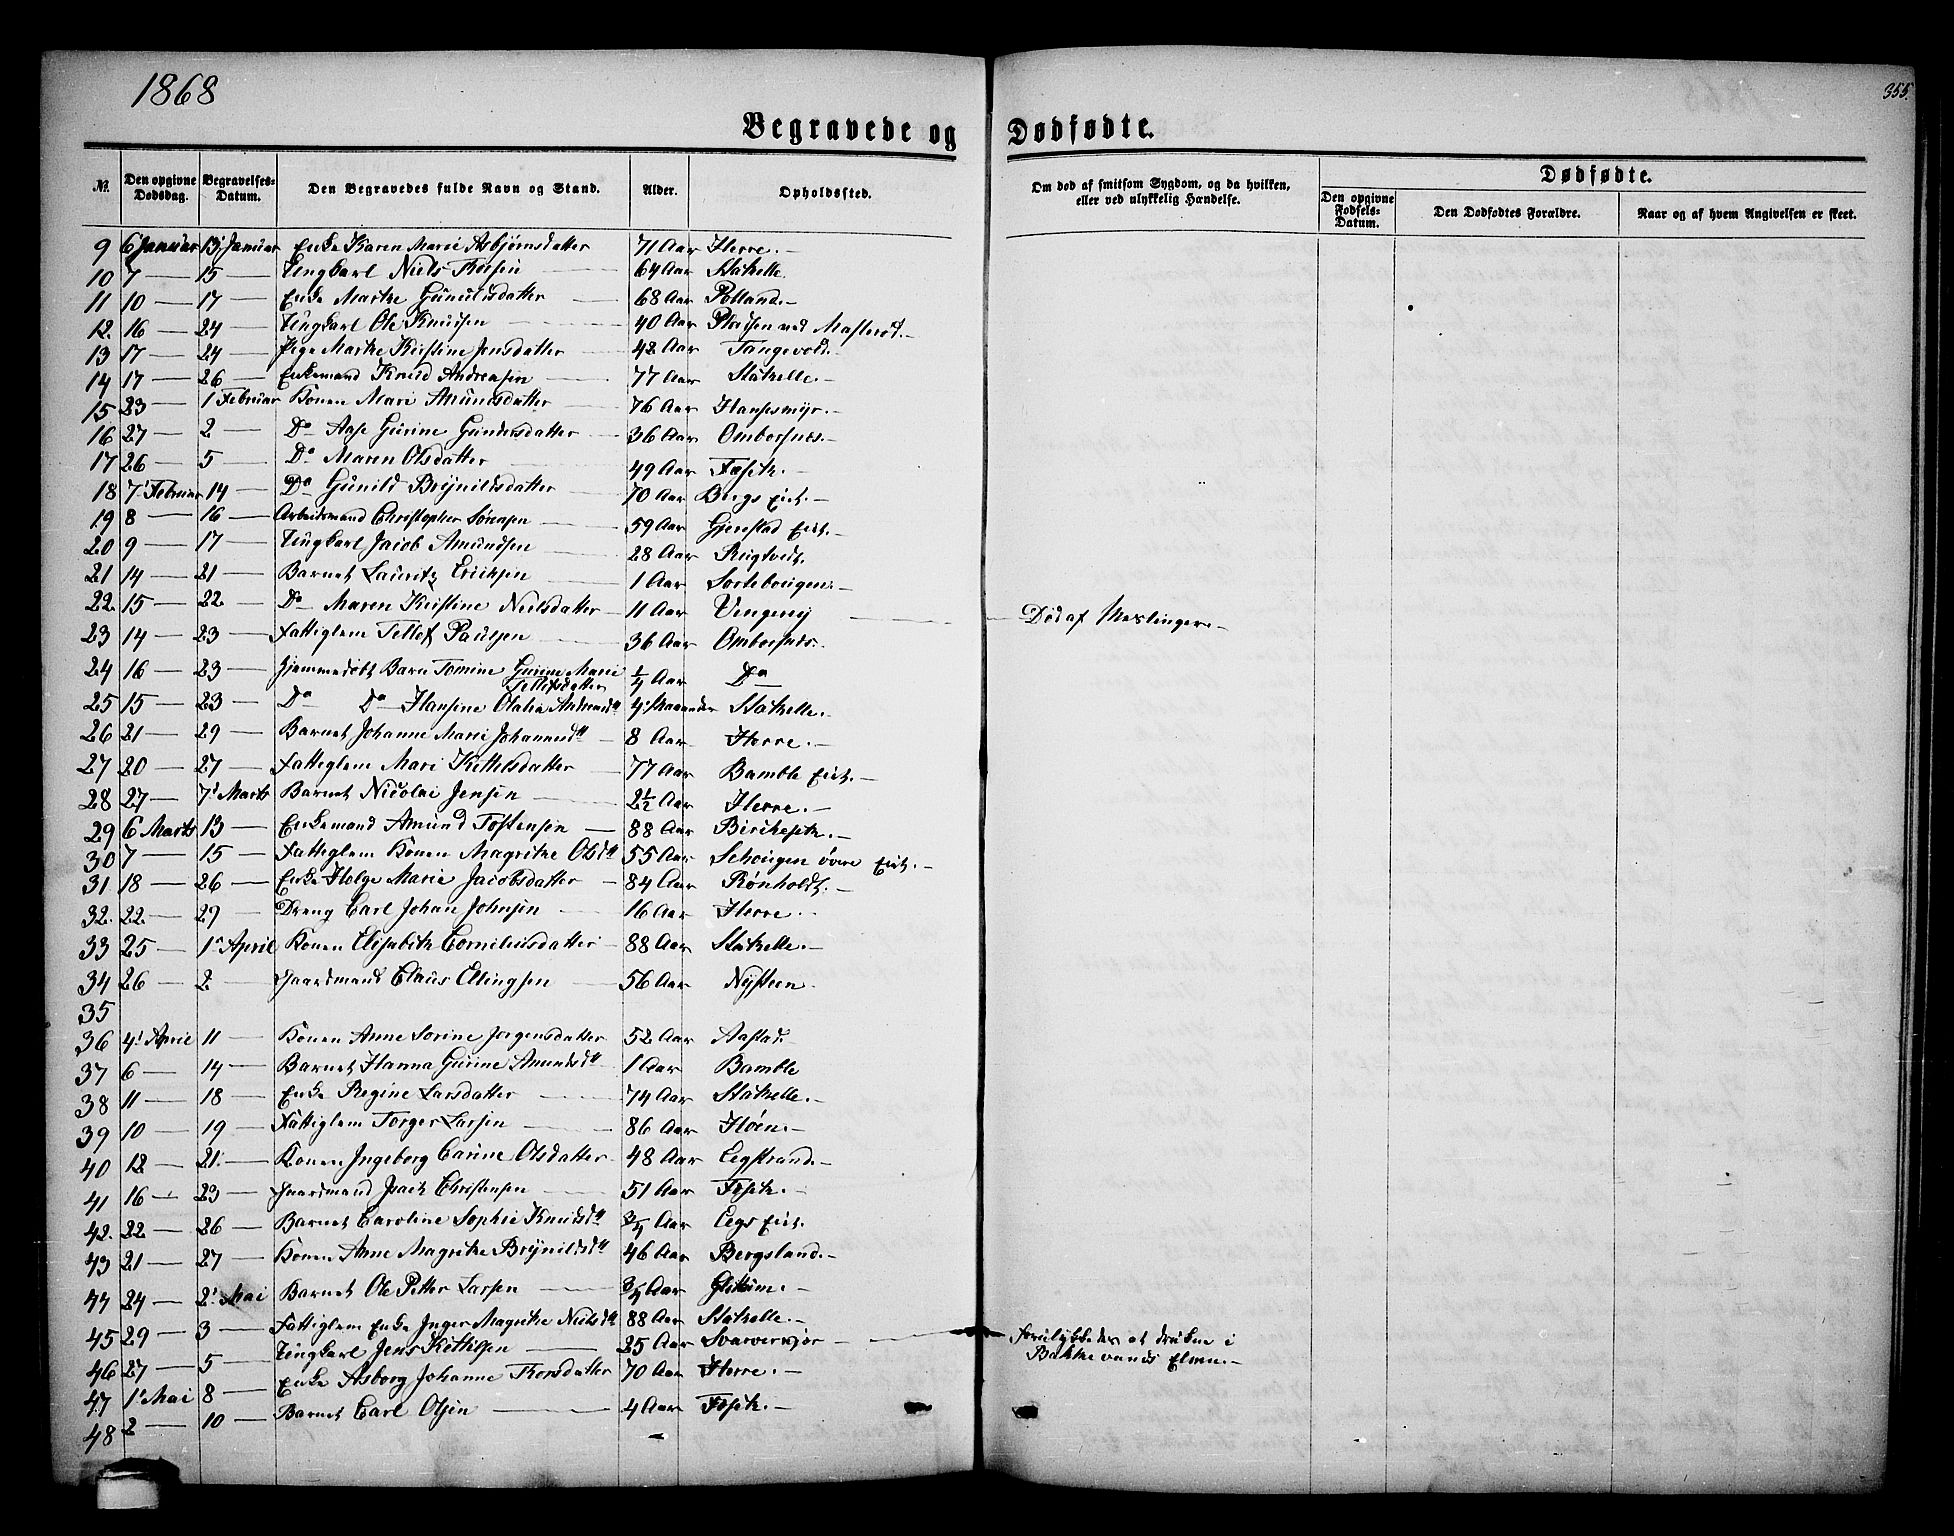 1868
355.
Begravede og Dødfødte.
№. Den opgivne Dødsdag. Begravelses-Datum. Den Begravedes fulde Navn og Stand. Alder. Opholdssted. Om død af smitsom Sygdom, og da hvilken, eller ved ulykkelig Hændelse. Dødfødte.
Den opgivne Fødsels-Datum. Den Dødfødtes Forældre. Naar og af hvem Angivelsen er skeet.
9 6 Januar 13 Januar Enke Karen Marie Asbjørnsdatter 71 Aar Herre.
10 7 — 15 — Ungkarl Niels 64 Aar Stathelle
11 10 — 17 — Enke Marthe Gunuldsdatter — 68 Aar Rolland.
12. 16 — 24 — Ungkarl Ole Knudsen — 40 Aar Pladsen ved
13 17 — 24 — Pige Marthe Kirstine Jensdatter — 42 Aar Tangevold.
14 17 — 26 — Enkemand Knud Andreasen — 77 Aar Stathelle.
15 23 — 1 Februar Konen Mari Amundsdatter 76 Aar Hansesmyr.
16 27 — 2 — Do Aase Gurine Gundersdatter — 36 Aar Omborsnes.
17 26 — 5 — Do Maren Olsdatter — 49 Aar Fosik.
18 7' Februar 14 — Do Gunild Brynildsdatter — 70 Aar Bergs Eiet.
19 8 — 16 — Arbeidsmand Christopher Sørensen 59 Aar Gjerestad Eiet.
20 9 — 17 — Ungkarl Jacob Amundsen — 28 Aar Rugtvedt.
21 14 — 21 — Barnet Lauritz Eriksen — 1 Aar
22. 15 — 22 — Do Maren Kirstine Nielsdatter — 11 Aar Vengerej — Død af Meslingere.
23 14 — 23 — Fattiglem Tellef Paulsen — 36 Aar Omborsnes.
24 16 — 23 — Hjemmedøbt Barn Tomine Gurine Marie Tellefsdatter 1/4 Aar Do
25 15 — 23 — Do Do Hansine Olalia Andreasdtr 4 Maaneder Stathelle.
26 21 — 29 — Barnet Johanne Marie Johannesdtr — 8 Aar Herre.
27 20 — 27 — Fattiglem Mari Kittelsdatter — 77 Aar Bamble Eiet.
28 27 — 7' Marts Barnet Nicolai Jensen — 2½ Aar Herre.
29 6 Marts 13 — Enkemand Amund Tostensen — 88 Aar
30 7 — 15 — Fattiglem Konen Magrithe Olsdtr 55 Aar øvre Eiet.
31 18 — 26 — Enke Helge Marie Jacobsdatter — 84 Aar Rønholdt.
32. 22 — 29 — Dreng Carl Johan Johnsen — 16 Aar Herre.
33 25 — 1' April Konen Elisabeth Corneliusdatter 88 Aar Stathelle.
34 26 — 2 — Gaardmand Claus Ellingsen — 56 Aar Nysteen
35
36 4' April 11 — Konen Anne Sorine Jørgensdatter 52 Aar Aastad.
37 6 — 14 — Barnet Hanna Gurine Amundsdtr 1 Aar Bamble
38 11 — 18 — Enke Regine Larsdatter — 74 Aar Stathelle.
39 10 — 19 — Fattiglem Torger Larsen — 86 Aar Høen.
40 12 — 21 — Konen Ingeborg Carine Olsdatter 48 Aar Eegstrand.
41 16 — 23 — Gaardmand Isack Christensen — 51 Aar Fosik.
42. 22 — 26 — Barnet Caroline Sophie Knudsdtr 3/4 Aar Eegs Eiet.
43 21 — 27 — Konen Anne Magrithe Brynildsdtr 46 Aar Bergsland.
44 24 — 2' Mai Barnet Ole Petter Larsen — 3/4 Aar Glittum.
45 29 — 3 — Fattiglem Enke Inger Magrithe Nielsdtr 88 Aar Stathelle.
46 27 — 5 — Ungkarl Jens Kittelsen — 25 Aar — Forulykkedes at drukne i Bakkevands Elven.
47 1' Mai 8 — Enke Asborg Johanne Thorsdatter 70 Aar Herre.
48 2 — 10 — Barnet Carl Olsen — 4 Aar Fosik.